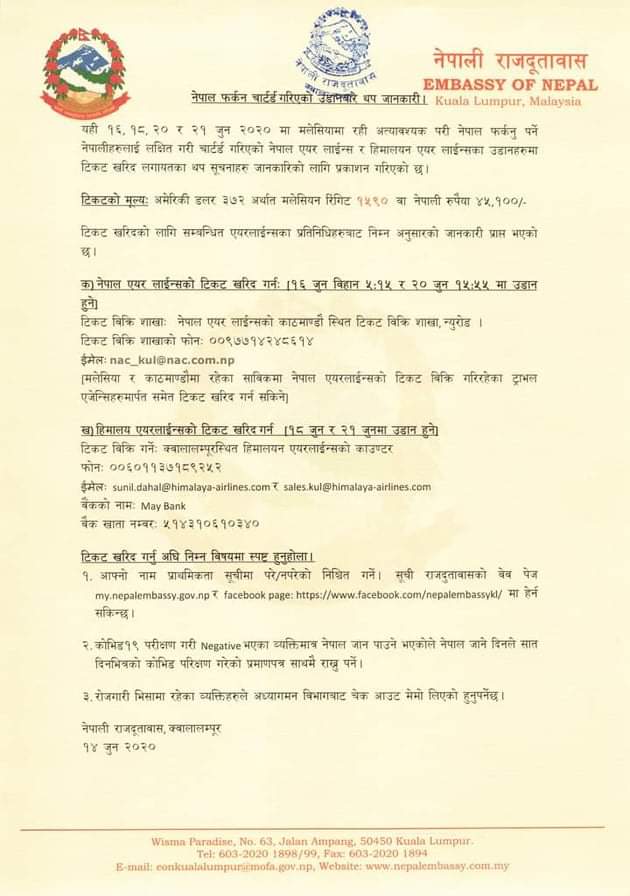 नेपाली राजदूतावास
नेपाली राजदूतावास
EMBASSY OF NEPAL
Kuala Lumpur, Malaysia
नेपाल फर्कन चार्टर्ड गरिएको उडानबारे थप जानकारी।
यही १६, १८, २० र २१ जुन २०२० मा मलेसियामा रही अत्यावश्यक परी नेपाल फर्कनु पर्ने
नेपालीहरुलाई लक्षित गरी चार्टर्ड गरिएको नेपाल एयर लाईन्स र हिमालयन एयर लाईन्सका उडानहरुमा
टिकट खरिद लगायतका थप सूचनाहरु जानकारिको लागि प्रकाशन गरिएको छ।
टिकटको मूल्यः अमेरिकी डलर ३७२ अर्थात मलेसियन रिंगिट १५९० वा नेपाली रुपैया ४५,१००/-
टिकट खरिदको लागि सम्वन्धित एयरलाईन्सका प्रतिनिधिहरुबाट निम्न अनुसारको जानकारी प्राप्त भएको
छ।
क) नेपाल एयर लाईन्सको टिकट खरिद गर्नः [१६ जुन विहान ५:१५ र २० जुन १५:५५ मा उडान
हुने]
टिकट विक्रि शाखाः नेपाल एयर लाईन्सको काठमाण्डौ स्थित टिकट विक्रि शाखा, न्युरोड ।
टिकट विक्रि शाखाको फोनः ००९७७१४२४८६१४
ईमेलः nac_kul@nac.com.np
[मलेसिया र काठमाण्डौमा रहेका साविकमा नेपाल एयरलाईन्सको टिकट विक्रि गरिरहेका ट्राभल
एजेन्सिहरुमार्पत समेत टिकट खरिद गर्न सकिने]
ख) हिमालय एयरलाईन्सको टिकट खरिद गर्न [१८ जुन र २१ जुनमा उडान हुने]
टिकट विक्रि गर्नेः क्वालालम्पूरस्थित हिमालयन एयरलाईन्सको काउण्टर
फोनः ००६०११३७१८९२५२
ईमेलः sunil.dahal@himalaya-airlines.com र sales.kul@himalaya-airlines.com
बैंकको नामः May Bank
बैक खाता नम्बरः ५१४३१०६१०३४०
टिकट खरिद गर्नु अघि निम्न विषयमा स्पष्ट हुनुहोला।
१. आफ्नो नाम प्राथमिकता सूचीमा परे/नपरेको निश्चित गर्ने। सूची राजदुतावासको वेब पेज
my.nepalembassy.gov.np र facebook page: https://www.facebook.com/nepalembassykl/ मा हेर्न
सकिन्छ।
२. कोभिड१९ परीक्षण गरी Negative भएका व्यक्तिमात्र नेपाल जान पाउने भएकोले नेपाल जाने दिनले सात
दिनभित्रको कोभिड परिक्षण गरेको प्रमाणपत्र साथमै राख्नु पर्ने।
३. रोजगारी भिसामा रहेका व्यक्तिहरुले अध्यागमन विभागबाट चेक आउट मेमो लिएको हुनुपर्नेछ।
नेपाली राजदूतावास, क्वालालम्पूर
१४ जुन २०२०
Wisma Paradise, No. 63, Jalan Ampang, 50450 Kuala Lumpur.
Tel: 603-2020 1898/99, Fax: 603-2020 1894
E-mail: eonkualalumpur@mofa.gov.np, Website: www.nepalembassy.com.my